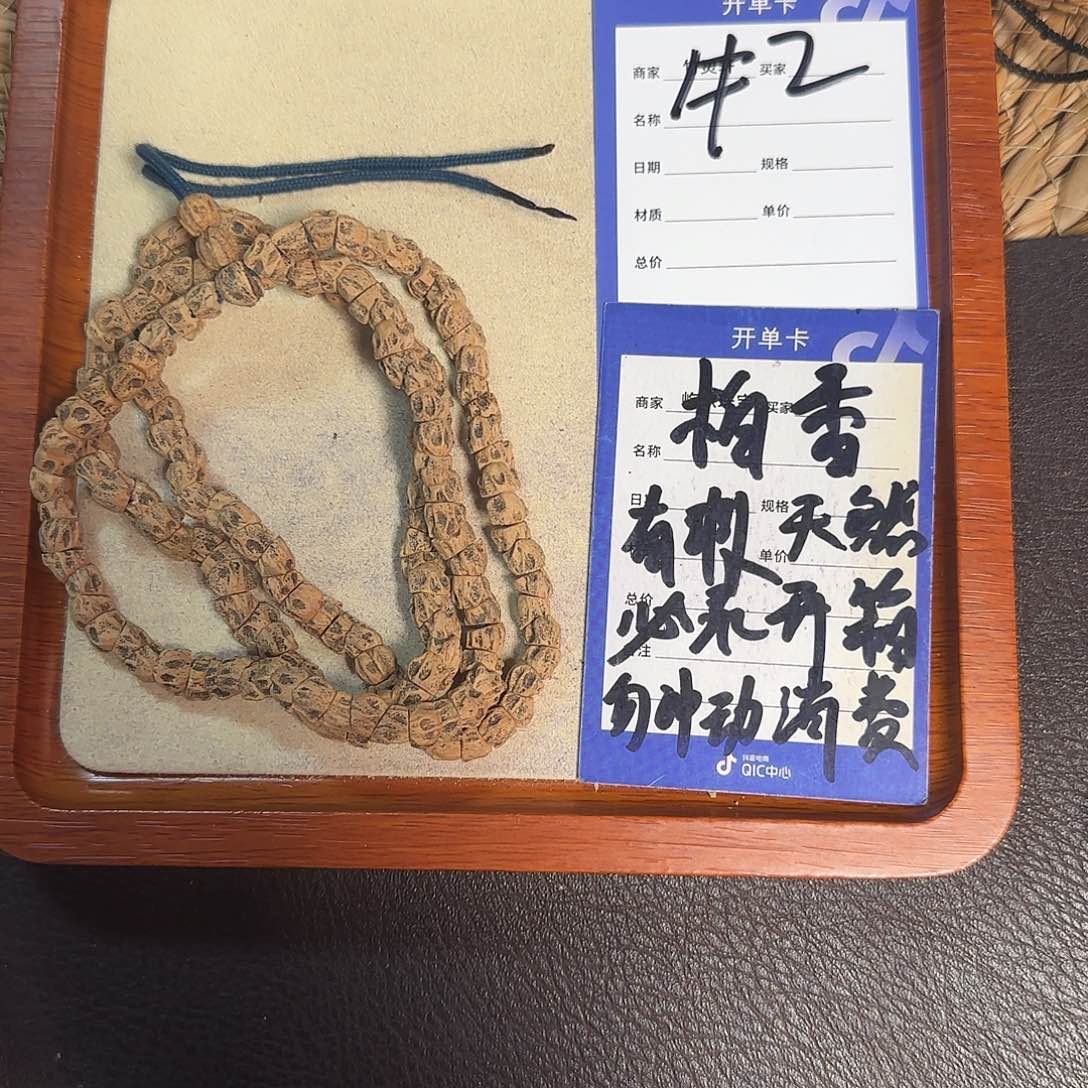 开单卡
商家 买家
牛2
名称
日期 规格
材质 单价
总价
开单卡
商家 买家
柏香
名称
规格
有机天然
单价
总价
必录开箱
注
勿冲动消费
抖音电商
QIC中心